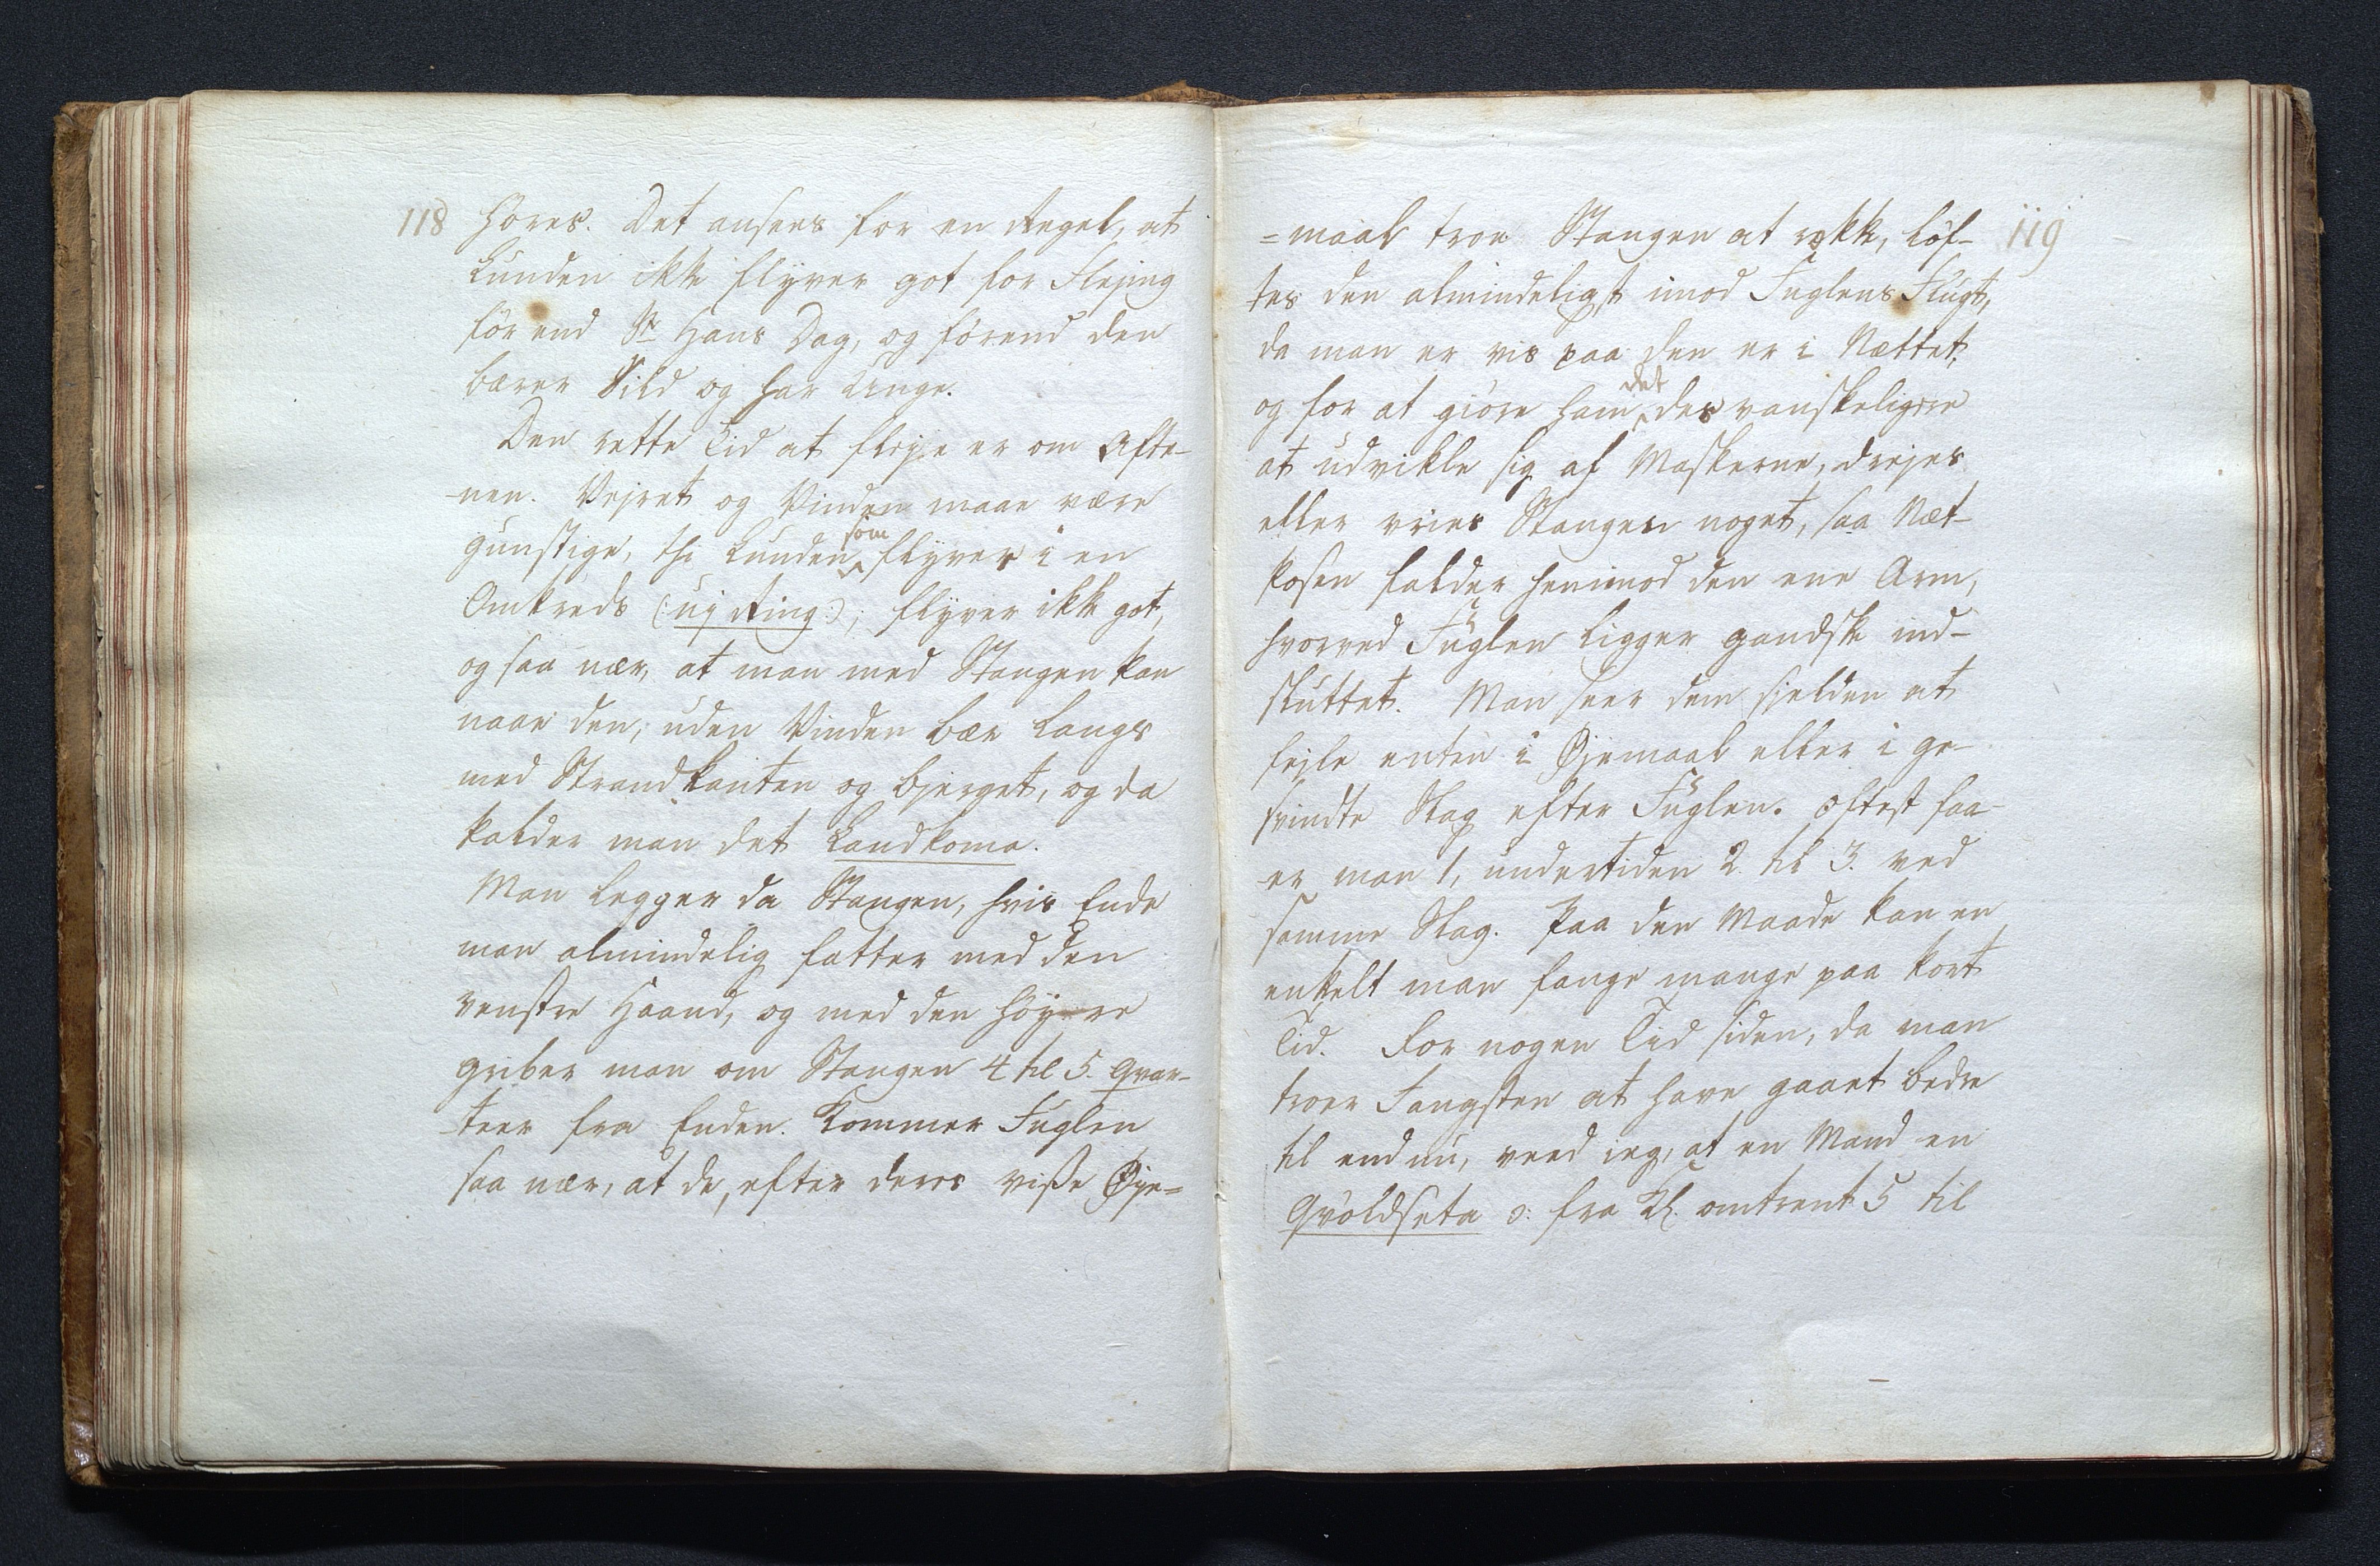 118
høres. Det ansees for en Regel, at
Lunden ikke flyver got for Flejing
før end St Hans Dag, og førend den
bærer Sild og har Unge.
Den rette Tid at fleje er om Afte-
nen. Vejret og Vinden maae være
gunstige, thi Lunden som flyver i en
Omkreds (: uj Ring :), flyver ikke got,
og saa nær, at man med Stangen kan
naae den, uden Vinden bær langs
med Strandkanten og Bjerget, og da
kalder man det Landkoma.
Man legger da Stangen, hvis Ende
man almindelig fatter med den
venstre Haand, og med den høyre
griber man om Stangen 4 til 5. Qvar-
teer fra Enden. Kommer Fuglen
saa nær, at de, efter deres visse Øye=
119
=maal troe Stangen at rekke, løf-
tes den almindeligst imod Fuglens Flugt,
da man er vis paa den er i Nættet;
og for at giøre ham det des vanskeligere
at udvikle sig af Maskerne, drejes
eller vries Stangen noget, saa Næt-
Posen falder henimod den ene Arm,
hvorved Fuglen ligger gandske ind-
sluttet. Man seer dem sjelden at
fejle enten i Øjemaal eller i ge-
svindte Slag efter Fuglen. Oftest faa-
er man 1, undertiden 2 til 3. ved
samme Slag. Paa den Maade kan en
enkelt man fange mange paa kort
Tid. For nogen Tid siden, da man
troer Fangsten at have gaaet bedre
til end nu, veed ieg, at en Mand en
Qvøldseta ɔ: fra Kl. omtrent 5 til